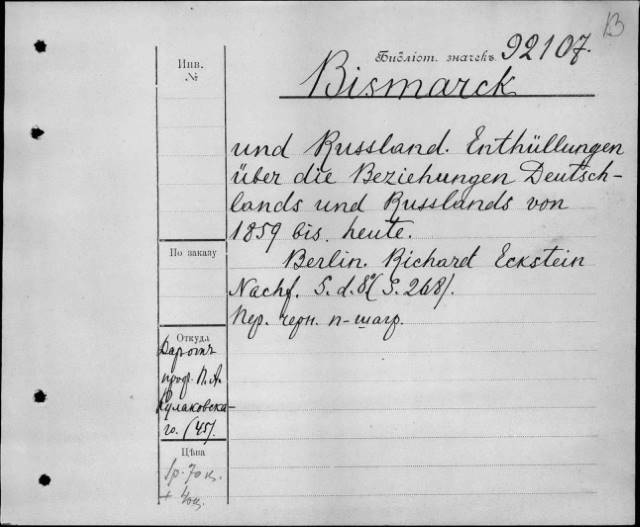 B
Библіот. значекъ 92107.
Инв.
№
Bismarck
und Russland. Enthüllungen
über die Beziehungen Deutsch-
lands und Russlands von
1859 bis heute.
По заказу
Berlin. Richard Eckstein
Nachf. S. d. 8° (S. 268).
Пер. черн. п-шагр.
Откуда
Даромъ
проф. П. А.
Кулаковска-
го. (45).
Цѣна
1р. 70 к.